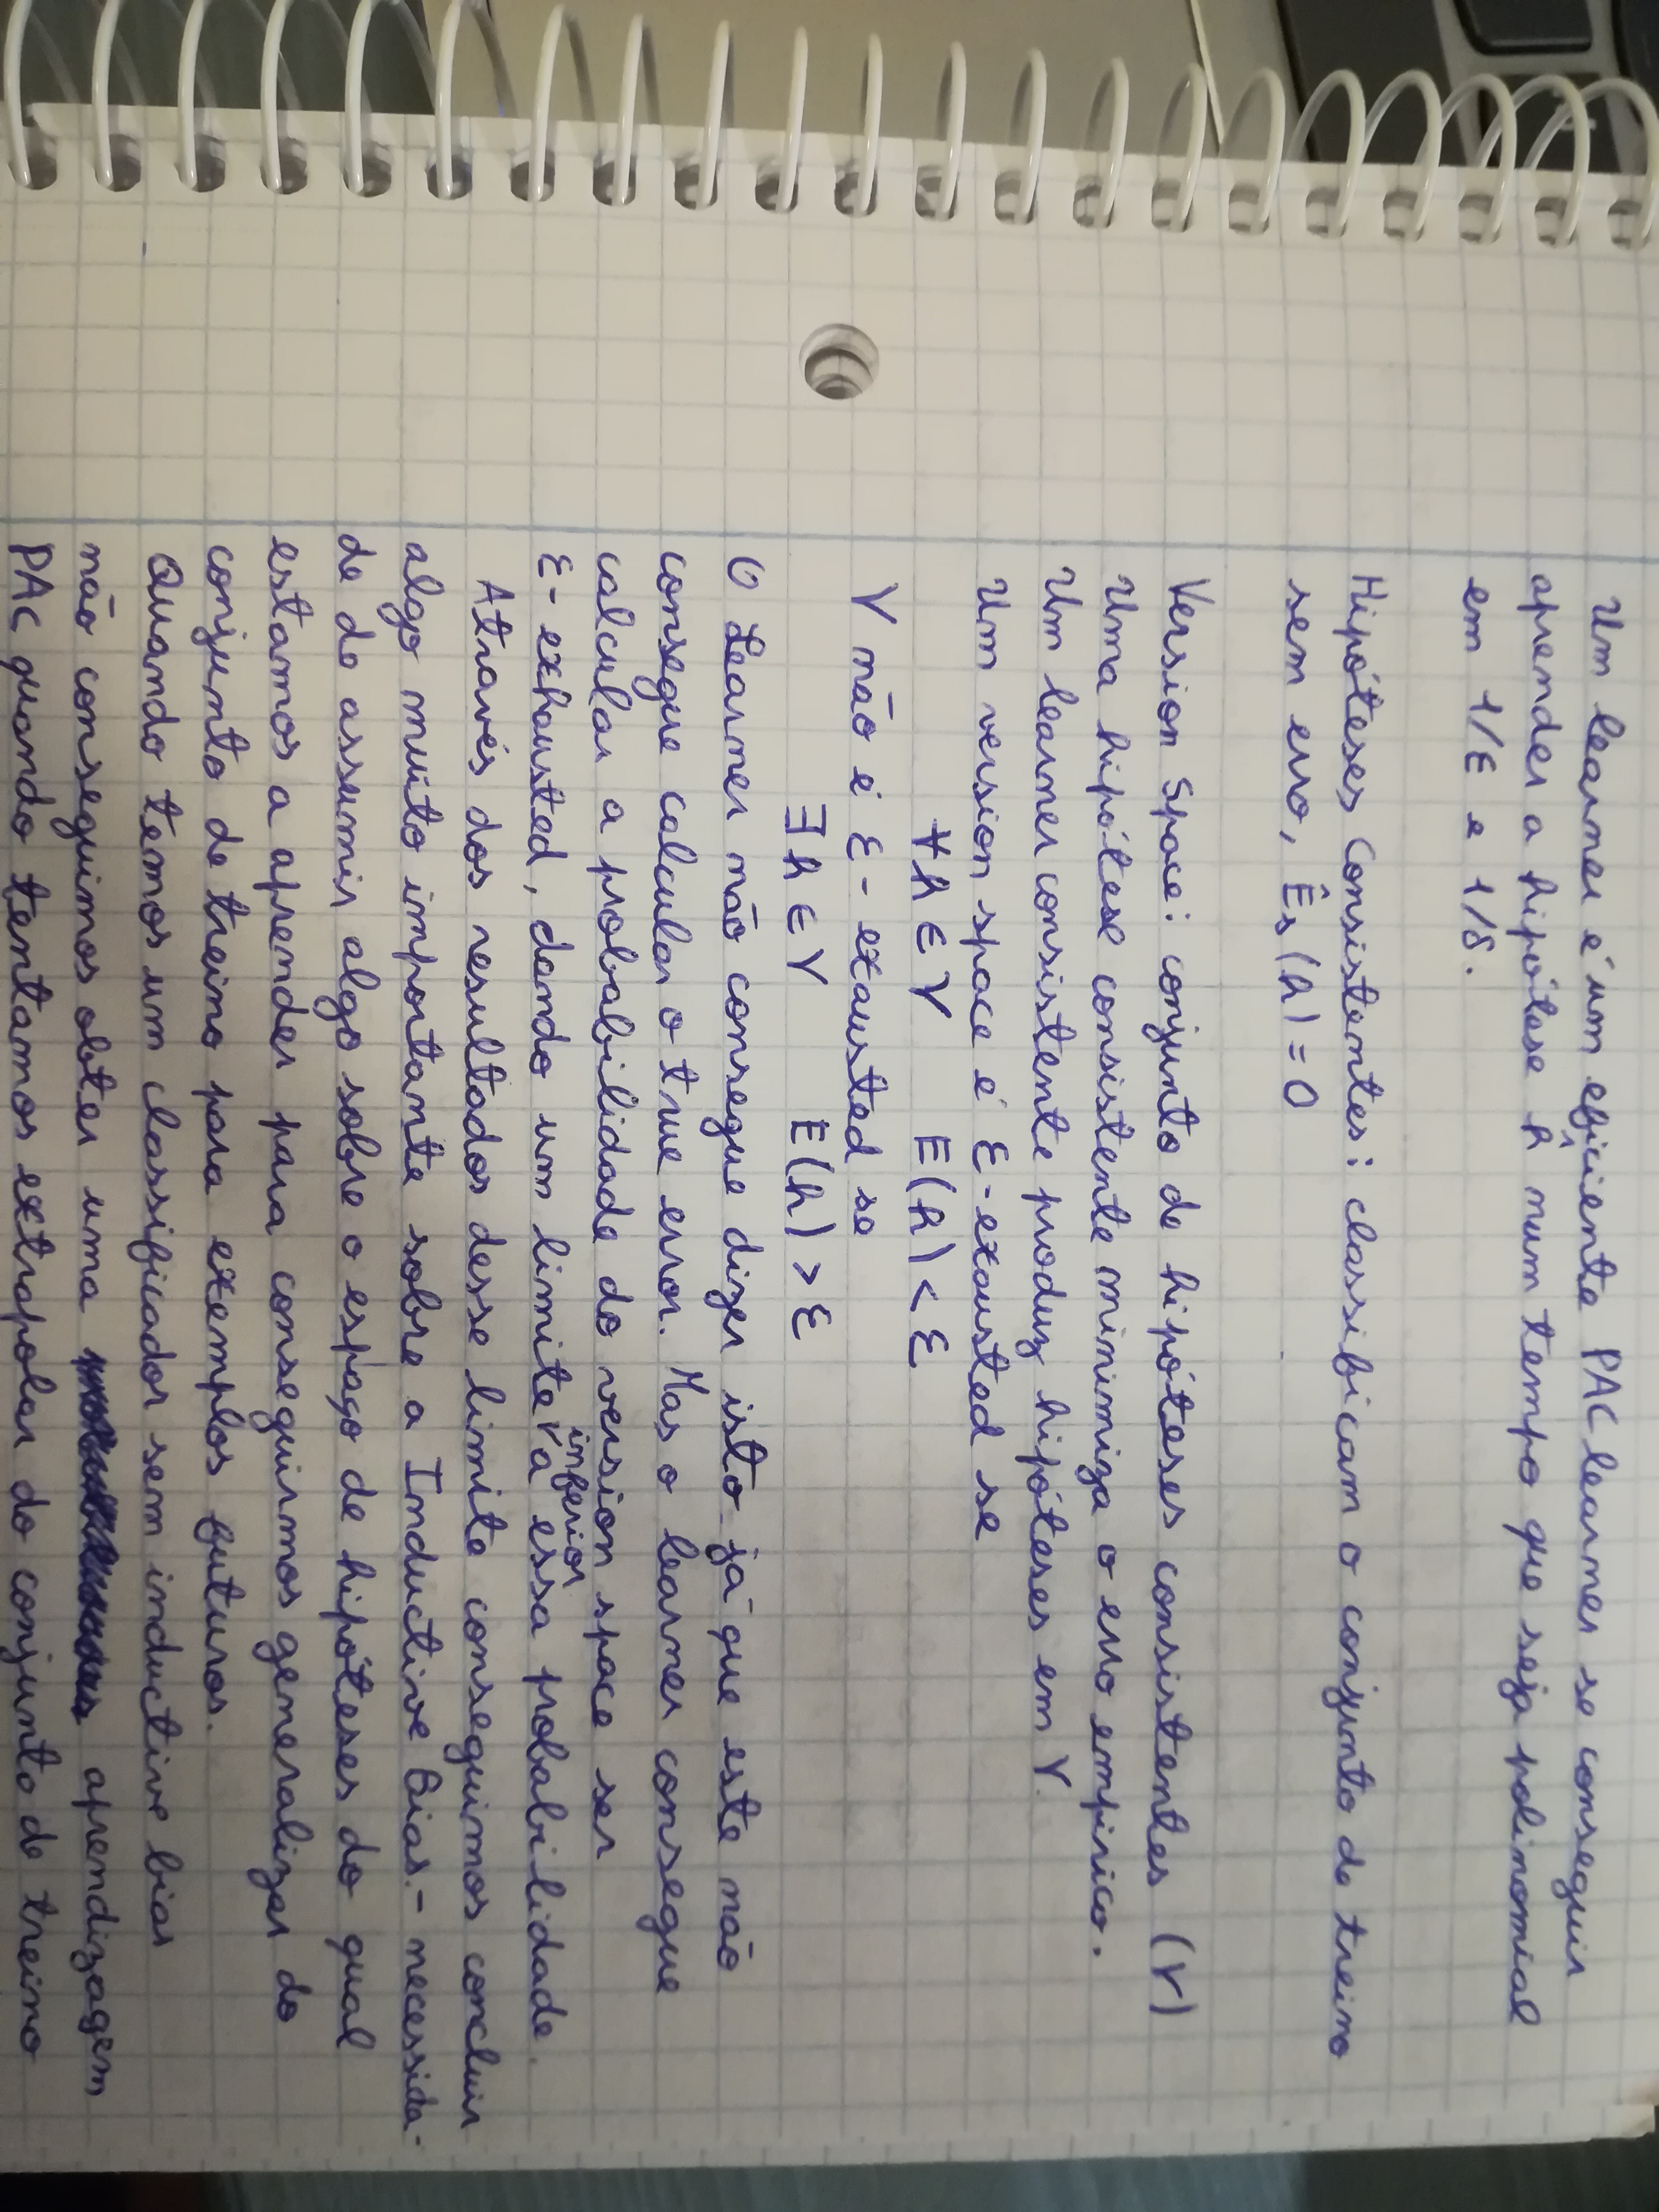 Um learner é um eficiente PAC learner se conseguir
aprender a hipótese h num tempo que seja polinomial
em 1/ε e 1/δ.
Hipóteses Consistentes: classificam o conjunto de treino
sem erro, Ês(h) = 0
Version Space: conjunto de hipóteses consistentes (V)
Uma hipótese consistente minimiza o erro empírico.
Um learner consistente produz hipóteses em V.
Um version space é ε-exausted se
∀h ∈ V E(h) < ε
V não é ε-exausted se
∃h ∈ V E(h) > ε
O Learner não consegue dizer isto já que este não
consegue calcular o true error. Mas o learner consegue
calcular a probabilidade do version space ser
ε-exhausted, dando um limite inferior a essa probabilidade.
Através dos resultados desse limite conseguimos concluir
algo muito importante sobre a Inductive Bias - necessida-
de de assumir algo sobre o espaço de hipóteses do qual
estamos a aprender para conseguirmos generalizar do
conjunto de treino para exemplos futuros.
Quando temos um classificador sem inductive bias
não conseguimos obter uma aprendizagem
PAC quando tentamos extrapolar do conjunto de treino